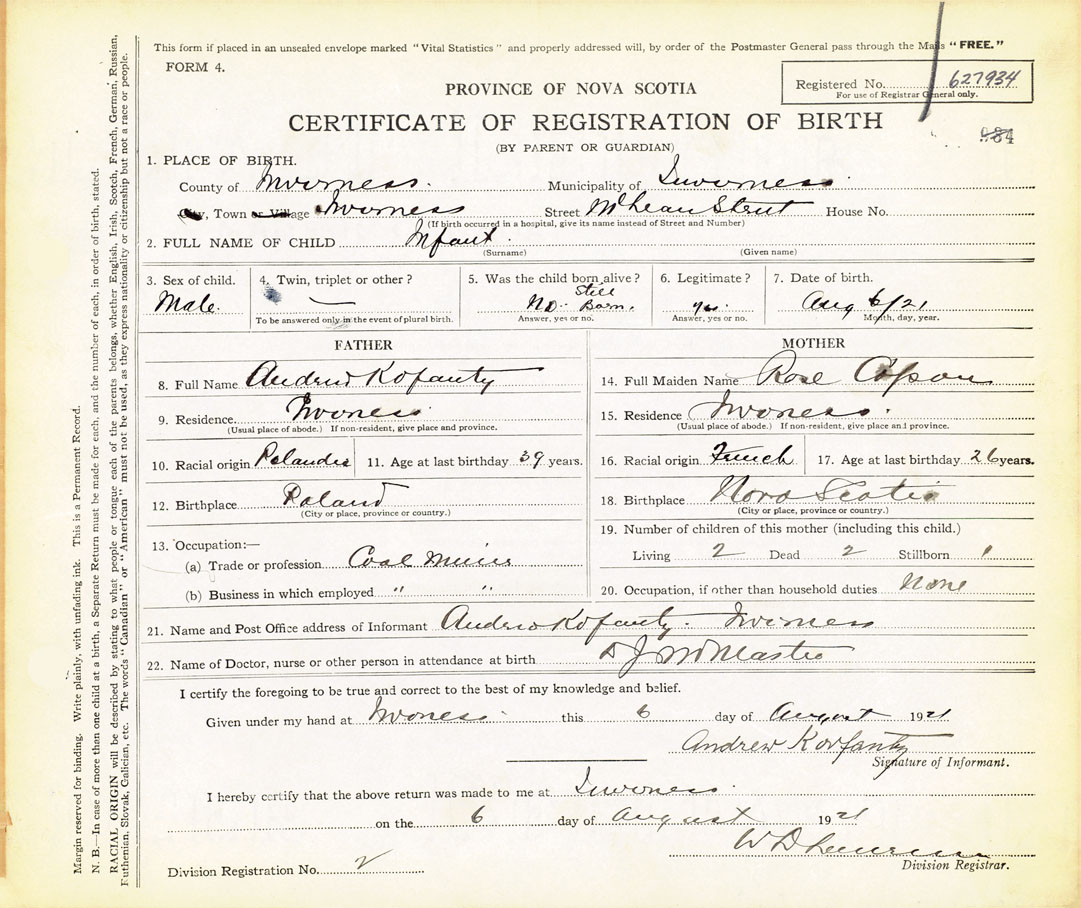 This form if placed in an unsealed envelope marked "Vital Statistics" and properly addressed will, by order of the Postmaster General pass through the Mails "FREE."
FORM 4.
Registered No. 627934
For use of Registrar General only.
PROVINCE OF NOVA SCOTIA
CERTIFICATE OF REGISTRATION OF BIRTH
984
(BY PARENT OR GUARDIAN)
1. PLACE OF BIRTH.
County of Inverness. Municipality of Inverness
City, Town or Village Inverness Street McLean Street House No.
(If birth occurred in a hospital, give its name instead of Street and Number)
2. FULL NAME OF CHILD Infant.
(Surname) (Given name)
3. Sex of child. 4. Twin, triplet or other? 5. Was the child born alive? 6. Legitimate? 7. Date of birth.
Male. — No. Still Born. yes. Aug 6/21
To be answered only in the event of plural birth. Answer, yes or no. Answer, yes or no. Month, day, year.
FATHER MOTHER
8. Full Name Andrew Kofanty 14. Full Maiden Name Rose
9. Residence. Inverness. 15. Residence Inverness.
(Usual place of abode.) If non-resident, give place and province. (Usual place of abode.) If non-resident, give place and province.
10. Racial origin 11. Age at last birthday 39 years. 16. Racial origin French 17. Age at last birthday 26 years.
12. Birthplace Poland 18. Birthplace Nova Scotia
(City or place, province or country.) (City or place, province or country.)
13. Occupation:— 19. Number of children of this mother (including this child.)
(a) Trade or profession Coal Miner Living 2 Dead 2 Stillborn 1
(b) Business in which employed " " 20. Occupation, if other than household duties None
21. Name and Post Office address of Informant Andrew Kofanty. Inverness
22. Name of Doctor, nurse or other person in attendance at birth D J McMaster
I certify the foregoing to be true and correct to the best of my knowledge and belief.
Given under my hand at Inverness. this 6 day of August 1921
Andrew Korfanty
Signature of Informant.
I hereby certify that the above return was made to me at Inverness.
on the 6 day of August 1921
W D
Division Registrar.
Division Registration No. 2
Margin reserved for binding. Write plainly, with unfading ink. This is a Permanent Record.
N. B.—In case of more than one child at a birth, a Separate Return must be made for each, and the number of each, in order of birth, stated.
RACIAL ORIGIN will be described by stating to what people or tongue each of the parents belongs, whether English, Irish, Scotch, French, German, Russian,
Ruthenian, Slovak, Galician, etc. The words "Canadian" or "American" must not be used, as they express nationality or citizenship but not a race or people.